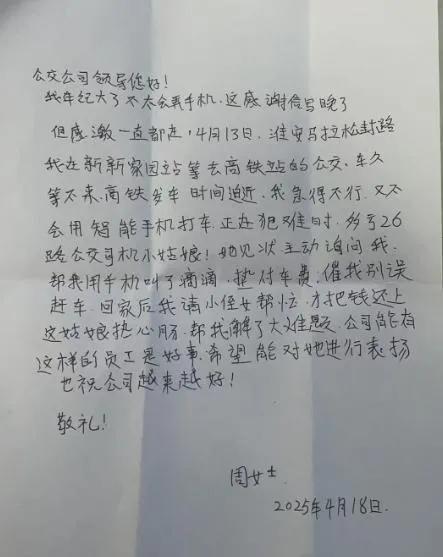 公交公司领导您好！
我年纪大了不太会弄手机，这感谢信写晚了
但感激一直都在，4月13日，淮安马拉松封路
我在新新家园站等去高铁站的公交，车久
等不来，高铁发车时间迫近，我急得不行，又不
会用智能手机打车，正在犯难时，多亏26
路公交司机小姑娘！她见状主动询问我，
帮我用手机叫了滴滴，垫付车费，催我别误
赶车，回家后我请小侄女帮忙，才把钱还上
这姑娘热心肠，帮我解了大难题，公司能有
这样的员工是好事，希望能对她进行表扬
也祝公司越来越好！
敬礼！
周女士
2025年4月18日.